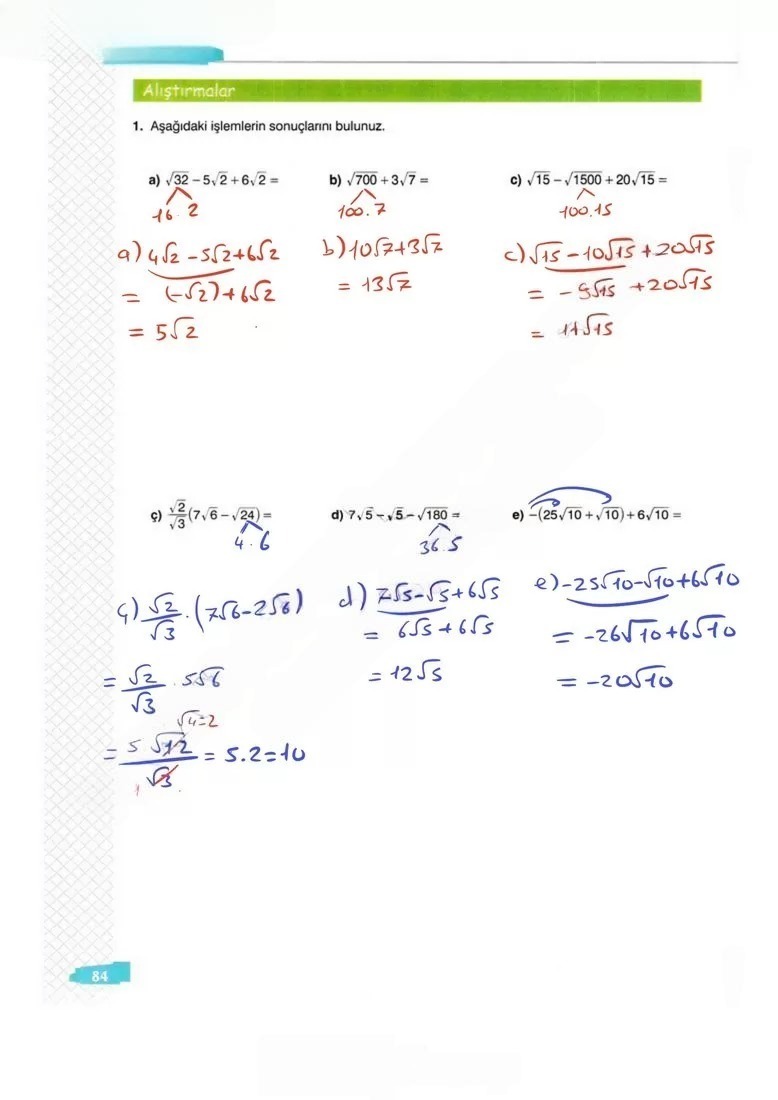 Alıştırmalar
1. Aşağıdaki işlemlerin sonuçlarını bulunuz.
a) √32 − 5√2 + 6√2 =
16 . 2
a) 4√2 − 5√2 + 6√2
= (−√2) + 6√2
= 5√2
b) √700 + 3√7 =
100 . 7
b) 10√7 + 3√7
= 13√7
c) √15 − √1500 + 20√15 =
100 . 15
c) √15 − 10√15 + 20√15
= − 9√15 + 20√15
= 11√15
ç) √2/√3 (7√6 − √24) =
4 . 6
ç) √2/√3 . (7√6 − 2√6)
= √2/√3 . 5√6
√4 = 2
= 5√12/√3 = 5.2 = 10
1
d) 7√5 − √5 − √180 =
36 . 5
d) 7√5 − √5 + 6√5
= 6√5 + 6√5
= 12√5
e) −(25√10 + √10) + 6√10 =
e) −25√10 − √10 + 6√10
= −26√10 + 6√10
= −20√10
84